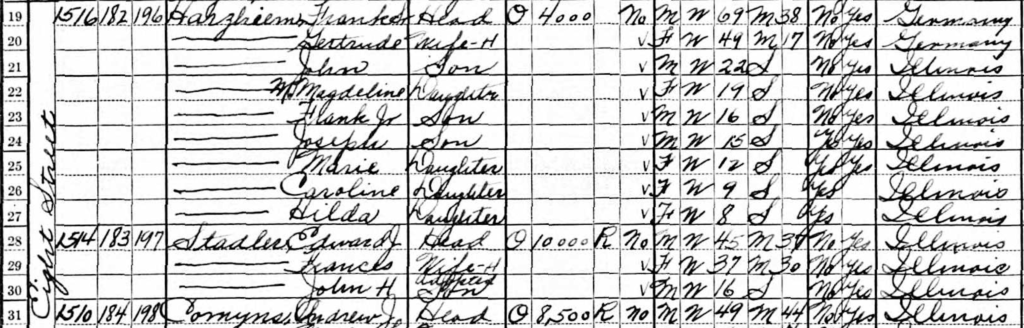 19 1516 182 196 Harzheim, Frank Sr Head O 4000 No M W 69 M 38 No Yes Germany
20 — Gertrude Wife-H V F W 49 M 17 No Yes Germany
21 — John Son V M W 22 S No Yes Illinois
22 — M. Magdeline Daughter V F W 19 S No Yes Illinois
23 — Frank Jr Son V M W 16 S No Yes Illinois
24 — Joseph Son V M W 15 S Yes Yes Illinois
25 — Marie Daughter V F W 12 S Yes Yes Illinois
26 — Caroline Daughter V F W 9 S Yes Illinois
27 — Hilda Daughter V F W 8 S Yes Illinois
28 1514 183 197 Stadler, Edward J. Head O 10000 R No M W 45 M No Yes Illinois
29 — Frances Wife-H V F W 37 M 30 No Yes Illinois
30 — John H Adopted Son V M W 16 S No Yes Illinois
31 1510 184 198 Comyns, Andrew J. Head O 8,500 R No M W 49 M 44 No Yes Illinois
Eight Street